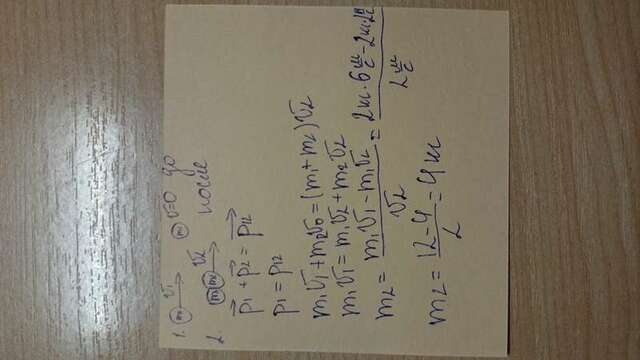 1. m₁ v₁ m v=0 до
2. m₁ m₂ v₂ после
p₁ + p₂ = p₁₂
p₁ = p₁₂
m₁v₁ + m₂v₀ = (m₁ + m₂)v₂
m₁v₁ = m₁v₂ + m₂v₂
m₂ = (m₁v₁ - m₁v₂)/v₂ = (2кг·6 м/с - 2кг·2 м/с)/(2 м/с)
m₂ = (12-4)/2 = 4кг